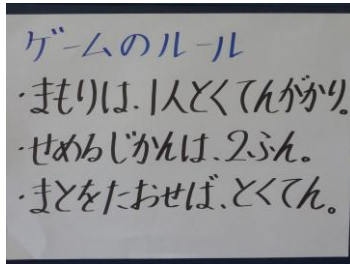 ゲームのルール
・まもりは、1人とくてんがかり。
・せめるじかんは、2ふん。
・まとをたおせば、とくてん。